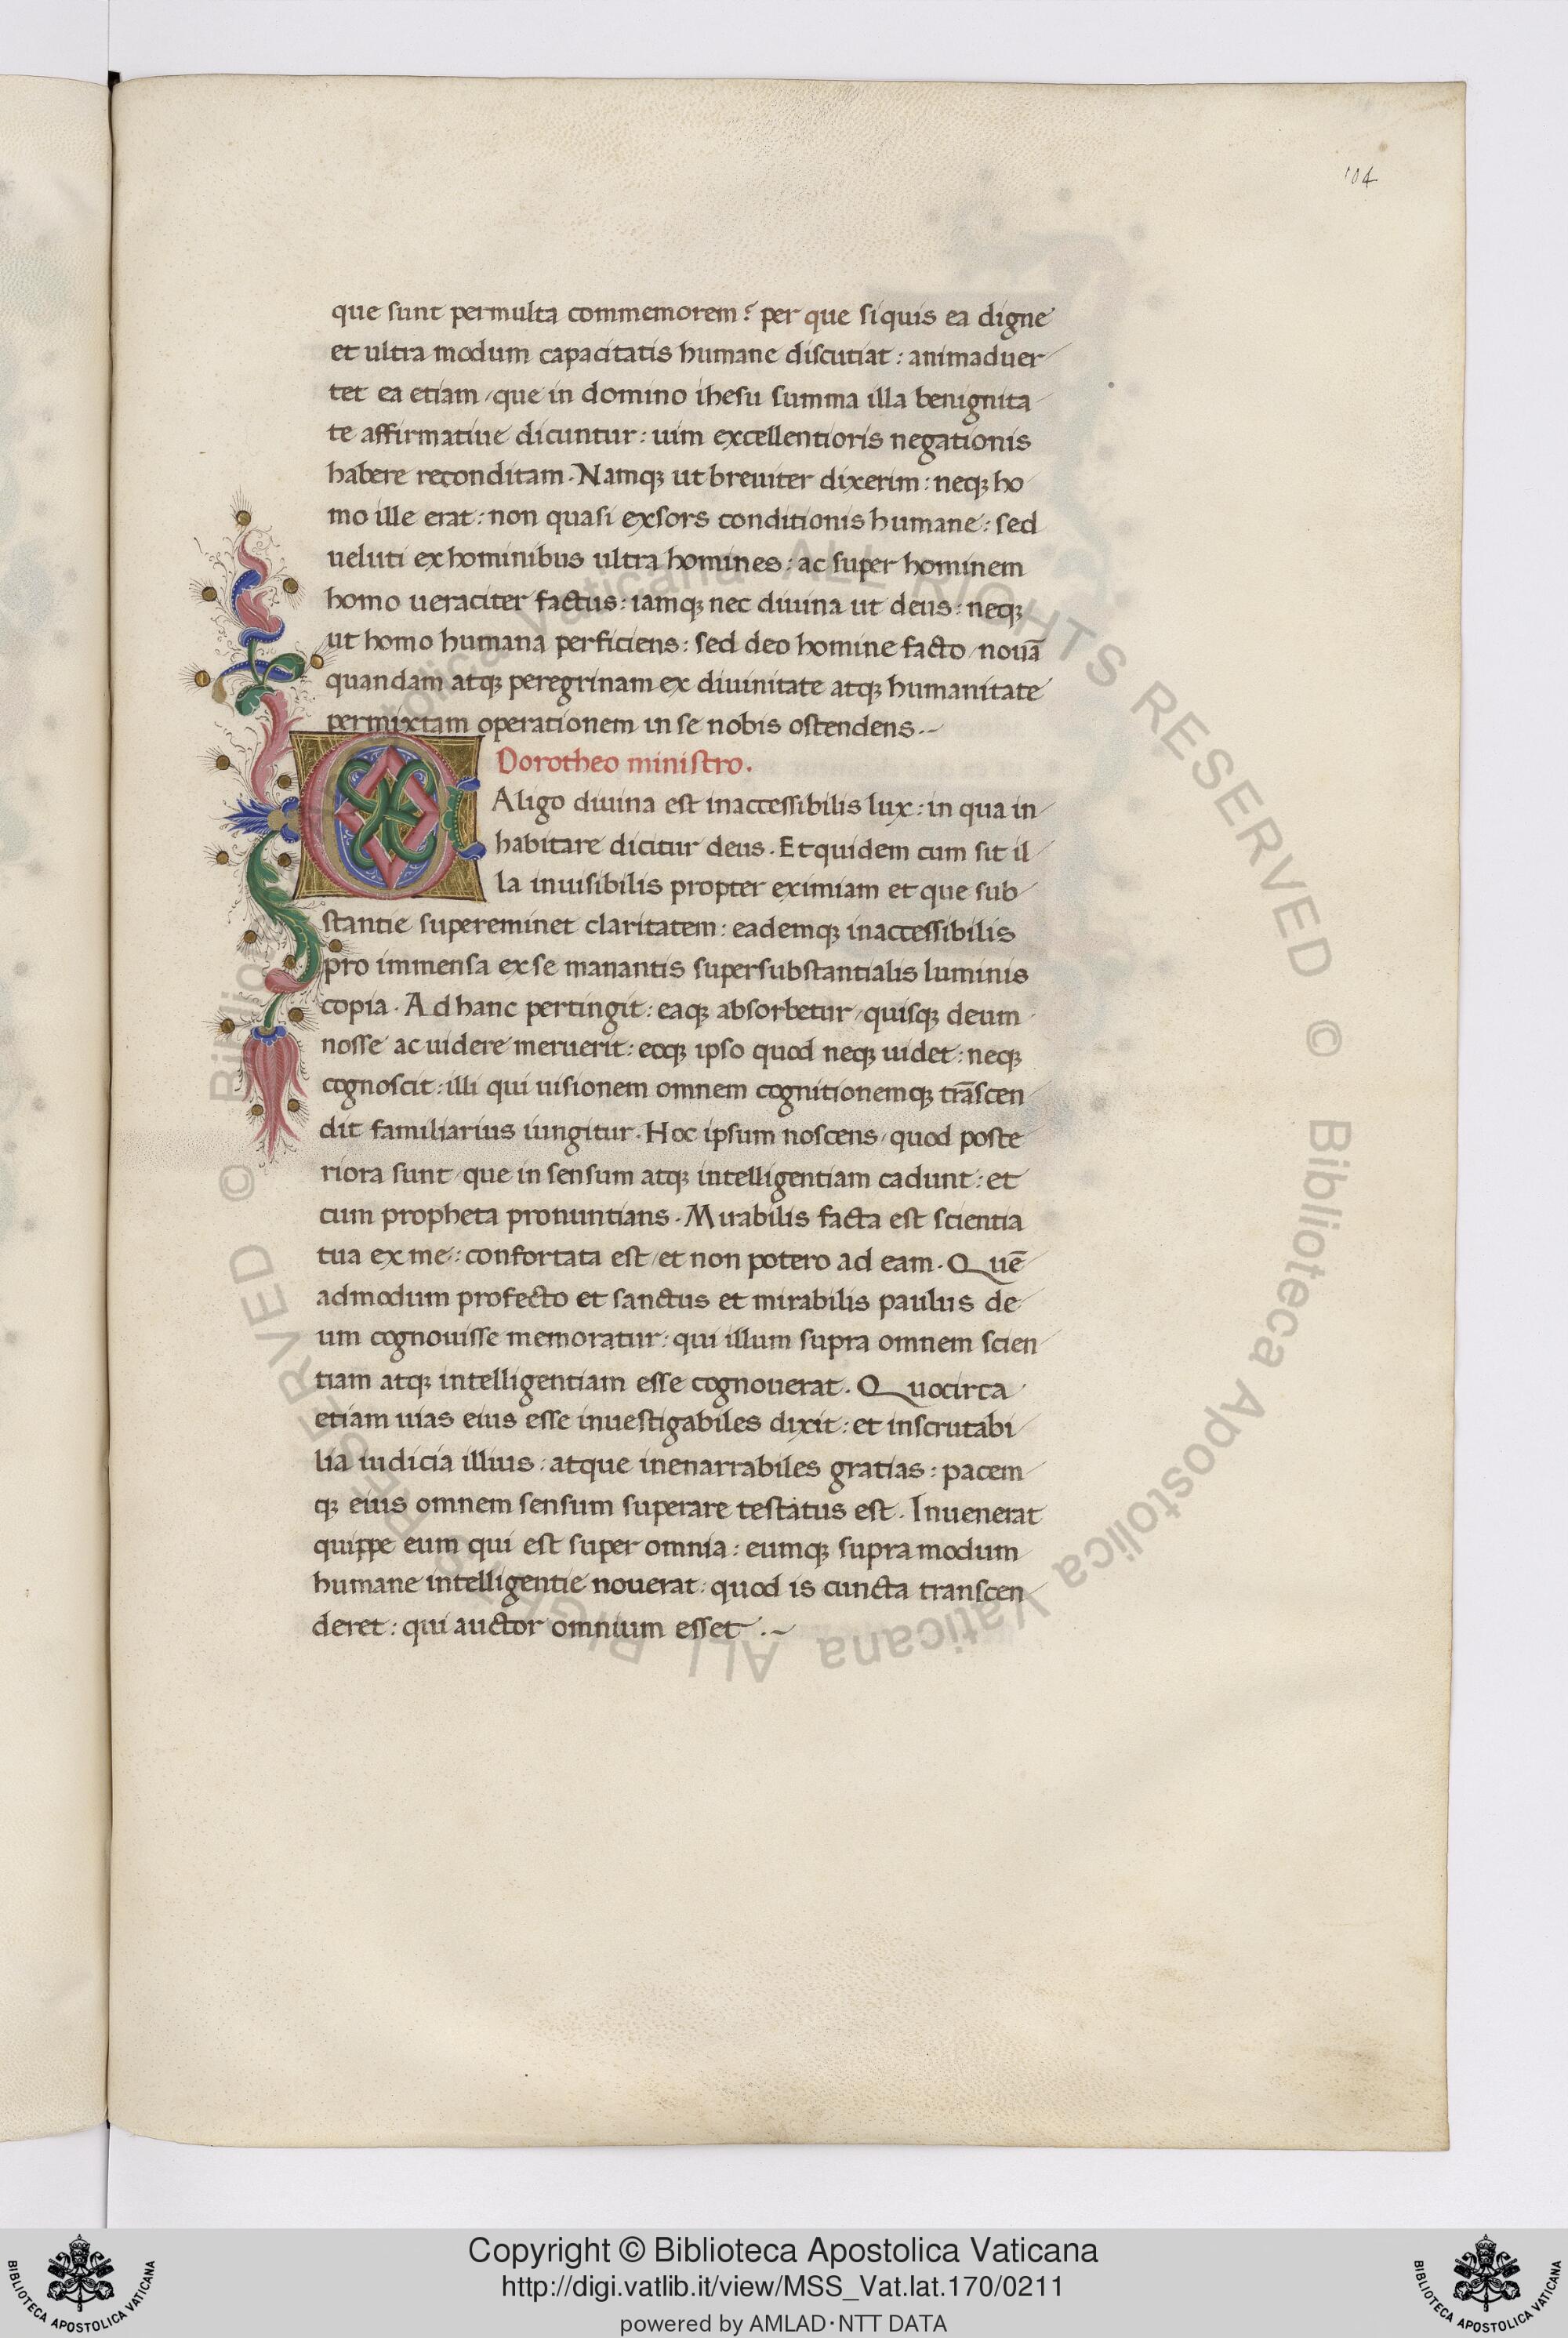 104
que sunt permulta commemorem? per que siquis ea digne
et ultra modum capacitatis humane discutiat: animaduer
tet ea etiam, que in domino ihesu summa illa benignita
te affirmatiue dicuntur: uim excellentioris negationis
habere reconditam. Namqꝫ ut breuiter dixerim: neqꝫ ho
mo ille erat: non quasi exsors conditionis humane: sed
ueluti ex hominibus ultra homines: ac super hominem
homo ueraciter factus: iamqꝫ nec diuina ut deus: neqꝫ
ut homo humana perficiens: sed deo homine facto, nouā
quandam atqꝫ peregrinam ex diuinitate atqꝫ humanitate
permixtam operationem in se nobis ostendens.~
Dorotheo ministro.
CAligo diuina est inaccessibilis lux: in qua in
habitare dicitur deus. Et quidem cum sit il
la inuisibilis propter eximiam et que sub
stantie supereminet claritatem: eademqꝫ inaccessibilis
pro immensa ex se manantis supersubstantialis luminis
copia. Ad hanc pertingit: eaqꝫ absorbetur, quisqꝫ deum
nosse ac uidere meruerit: eoqꝫ ipso quod neqꝫ uidet: neqꝫ
cognoscit: illi qui uisionem omnem cognitionemqꝫ trāscen
dit familiarius iungitur. Hoc ipsum noscens, quod poste
riora sunt, que in sensum atqꝫ intelligentiam cadunt: et
cum propheta pronuntians. Mirabilis facta est scientia
tua ex me: confortata est, et non potero ad eam. Quē
admodum profecto et sanctus et mirabilis paulus de
um cognouisse memoratur: qui illum supra omnem scien
tiam atqꝫ intelligentiam esse cognouerat. Quocirca
etiam uias eius esse inuestigabiles dixit: et inscrutabi
lia iudicia illius: atque inenarrabiles gratias: pacem
qꝫ eius omnem sensum superare testatus est. Inuenerat
quippe eum qui est super omnia: eumqꝫ supra modum
humane intelligentie nouerat: quod is cuncta transcen
deret: qui auctor omnium esset.~
© Biblioteca Apostolica Vaticana ALL RIGHTS RESERVED © Biblioteca Apostolica Vaticana ALL RIGHTS RESERVED
Copyright © Biblioteca Apostolica Vaticana
http://digi.vatlib.it/view/MSS_Vat.lat.170/0211
powered by AMLAD·NTT DATA
BIBLIOTECA APOSTOLICA VATICANA
BIBLIOTECA APOSTOLICA VATICANA